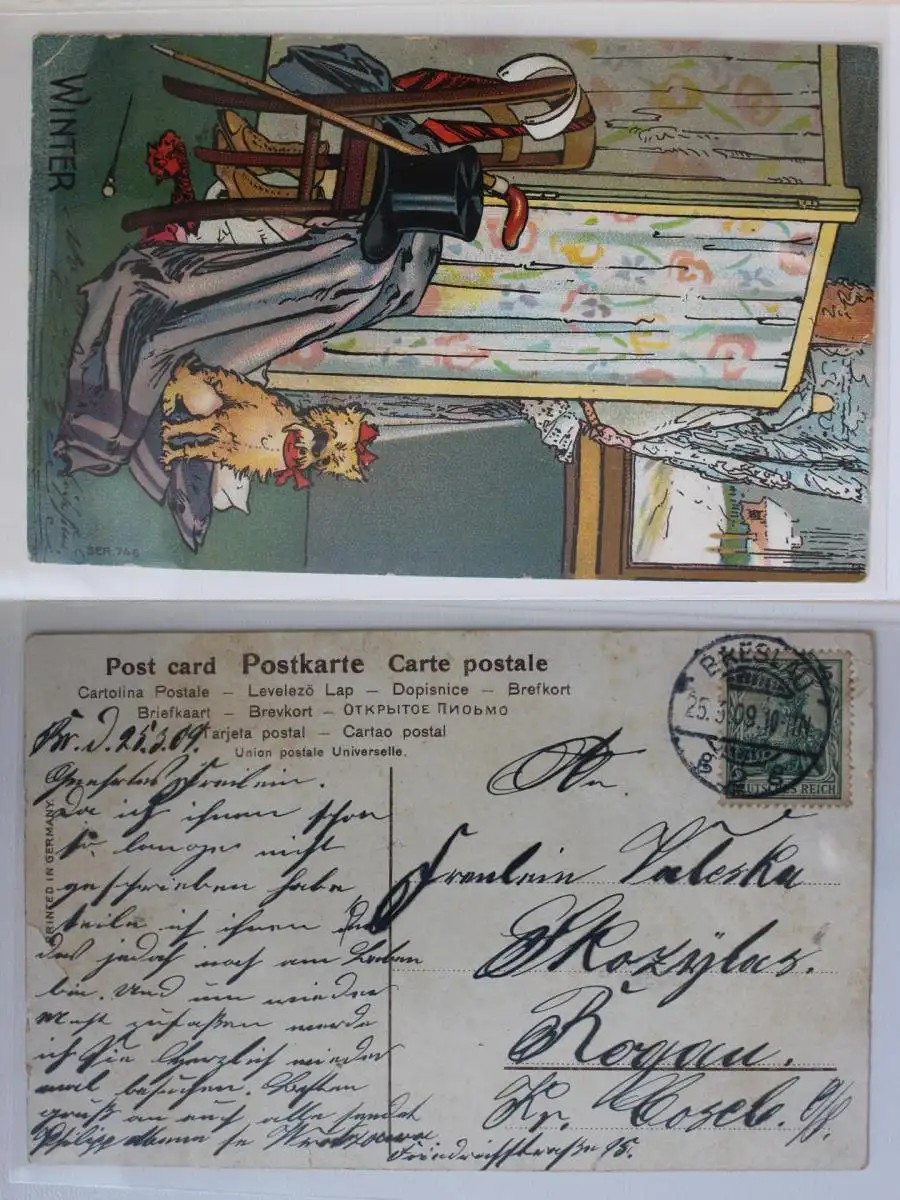 WINTER
SER. 746
Post card Postkarte Carte postale
Cartolina Postale – Levelező Lap – Dopisnice – Brefkort
Briefkaart – Brevkort – Открытое письмо
Tarjeta postal – Cartao postal
Union postale Universelle.
PRINTED IN GERMANY.
BRESLAU
25.3.09.10-11N.
DEUTSCHES REICH
Br. d. 25.3.09.
Geehrtes Freilein.
Da ich ihnen schon
so lange nicht
geschrieben habe
teile ich ihnen
das jedoch noch am Leben
bin. Und um wieder
zufaßen werde
ich Sie Herzlich wieder
mal besuchen. Besten
gruß an euch alle sendet
Philipp
Friedrichstraße 95.
An
Freulein Valeska
Skozylas.
Rogau.
Kr. Cosel. O/S.